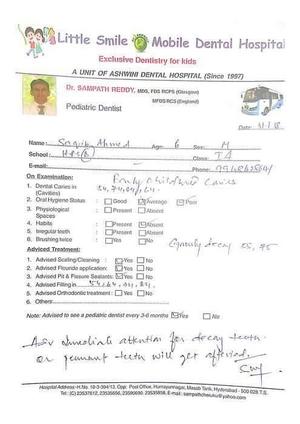 Little Smile Mobile Dental Hospital
Exclusive Dentistry for kids
A UNIT OF ASHWINI DENTAL HOSPITAL (Since 1997)
Dr. SAMPATH REDDY, MDS, FDS RCPS (Glasgow)
MFDS RCS (England)
Pediatric Dentist
Date:
Name: Ahmed Age: 6 Sex: M
School: Class:
E-mail: Phone:
On Examination: Early Childhood Caries
1. Dental Caries in (Cavities)
2. Oral Hygiene Status : Good Average Poor
3. Physiological Spaces : Present Absent
4. Habits : Present Absent
5. Irregular teeth : Present Absent
6. Brushing twice : Yes No
Grossly decay 55, 75
Adviced Treatment:
1. Advised Scaling/Cleaning : Yes No
2. Advised Flouride application: Yes No
3. Advised Pit & Fissure Sealants: Yes No
4. Advised Filling in
5. Advised Orthodontic treatment : Yes No
6. Others:
Note: Advised to see a pediatric dentist every 3-6 months Yes No
Adv immediate attention for decay teeth
or permanent teeth will get affected.
Hospital Address: H.No. 10-3-304/13, Opp: Post Office, Humayunnagar, Masab Tank, Hyderabad - 500 028 T.S.